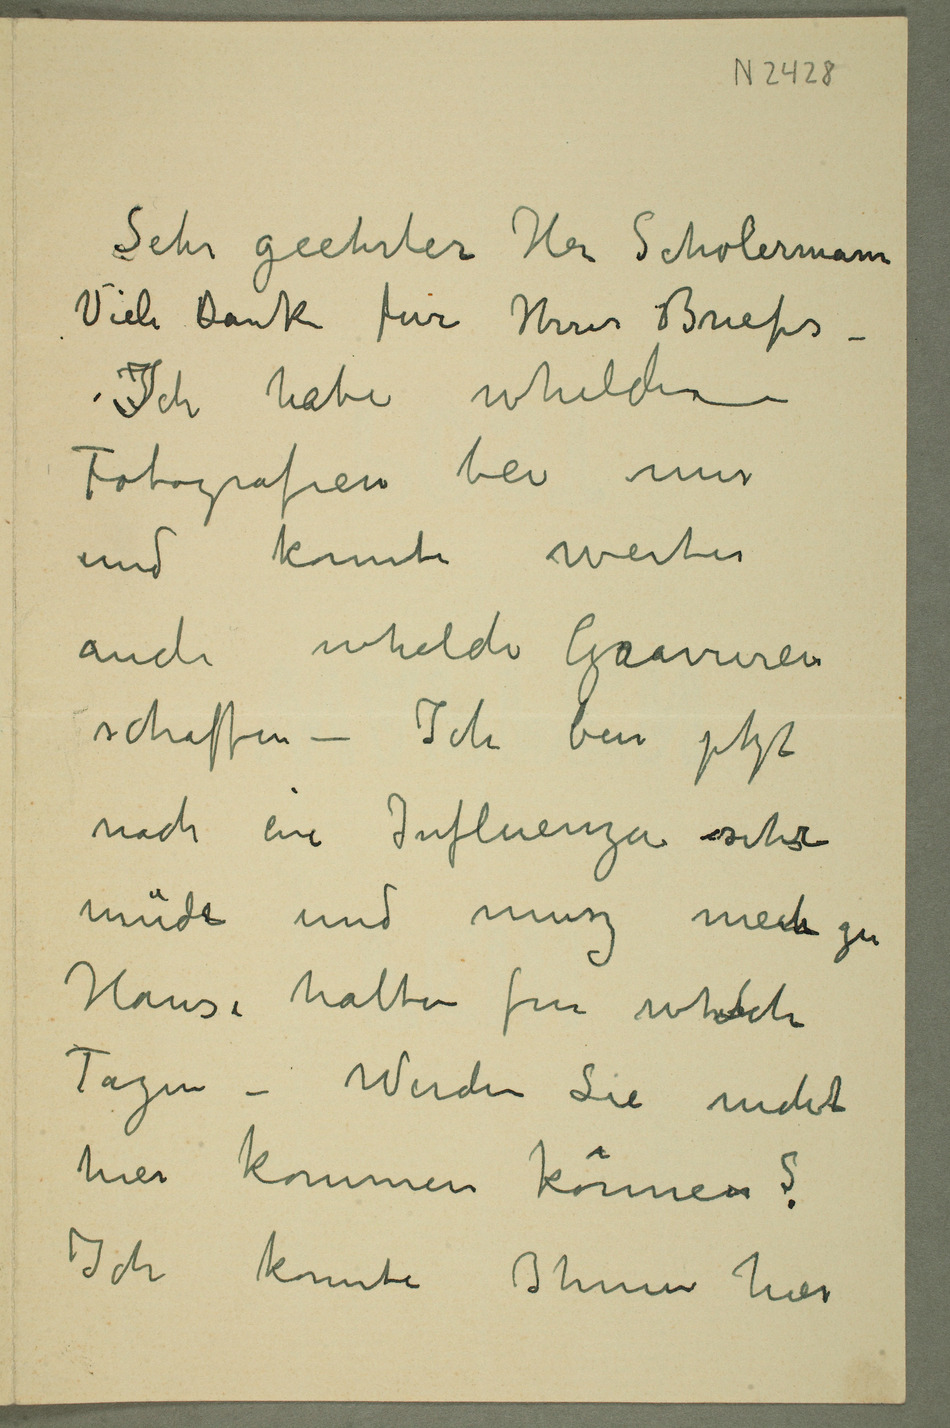 N 2428
Sehr geehrter Her Scholermann
Viele Dank für Ihres Briefes –
Ich habe whelde
Fotografien bei mir
und konnte weiter
auch whelche Gravuren
schaffen – Ich bin jetzt
nach eine Influenza sehr
müde und musz mich zu
Hause halten für whelche
Tagen – Werden Sie nicht
hier kommen können?
Ich konnte Ihnen hier